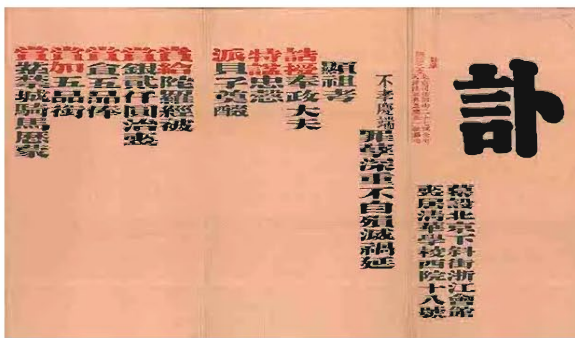 訃
幕設北京下斜街浙江會館
喪居清華學校西院十八號
不孝慶端罪孽深重不自殞滅禍延
顯祖考
誥授奉政大夫
特諡忠慤
派貝子奠醊
賞給陀羅經被
賞銀貳仟圓治喪
賞食五品俸
賞加五品銜
賞紫禁城騎馬歷蒙